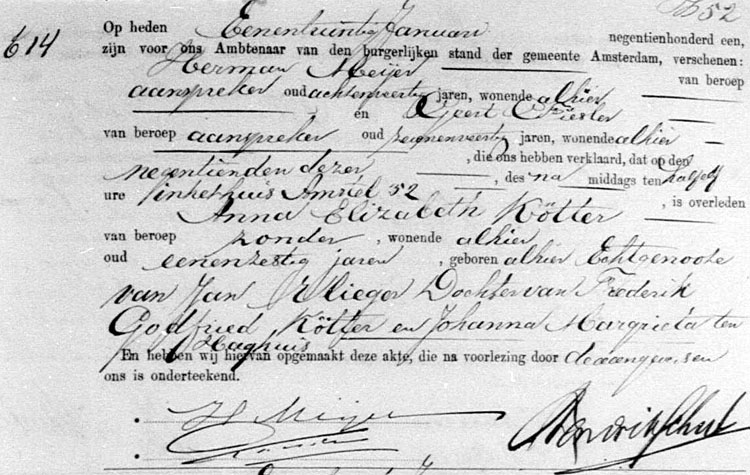 52
614
Op heden Eenentwintig Januari negentienhonderd een,
zijn voor ons Ambtenaar van den burgerlijken stand der gemeente Amsterdam, verschenen:
Herman Meijer van beroep
aanspreker oud achtenveertig jaren, wonende alhier
en Geert
van beroep aanspreker oud zevenenveertig jaren, wonende alhier
, die ons hebben verklaard, dat op den
negentienden dezer , des na middags ten half elf
ure in het huis Amstel 52 , is overleden
Anna Elizabeth Kötter
van beroep zonder , wonende alhier
oud eenenzestig jaren , geboren alhier Echtgenoote
van Jan Vlieger Dochter van Frederik
Godfried Kötter en Johanna Margrieta ten
Haghuis
En hebben wij hiervan opgemaakt deze akte, die na voorlezing door de aangevers en
ons is onderteekend.
H Meijer
Hendrik Schut